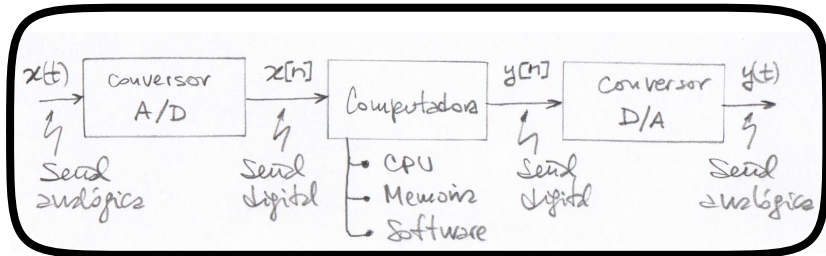 x(t)
Conversor
A/D
x[n]
Computadora
y[n]
Conversor
D/A
y(t)
Señal
analógica
Señal
digital
CPU
Memoria
Software
Señal
digital
Señal
analógica